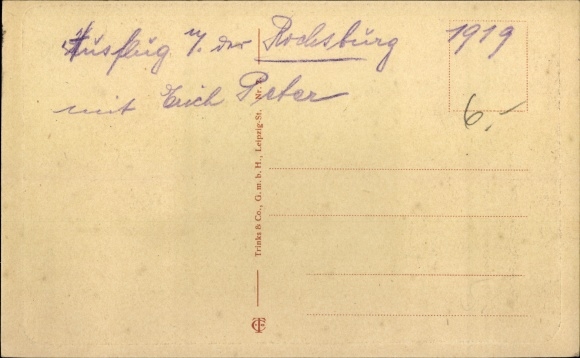 Ausflug n. der Rochsburg 1919
mit Erich Peter
6.-
Trinks & Co., G. m. b. H., Leipzig-St. Nr.